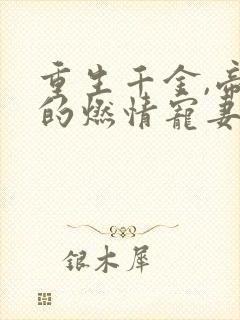 重生千金,帝
的燃情宠妻
银木犀